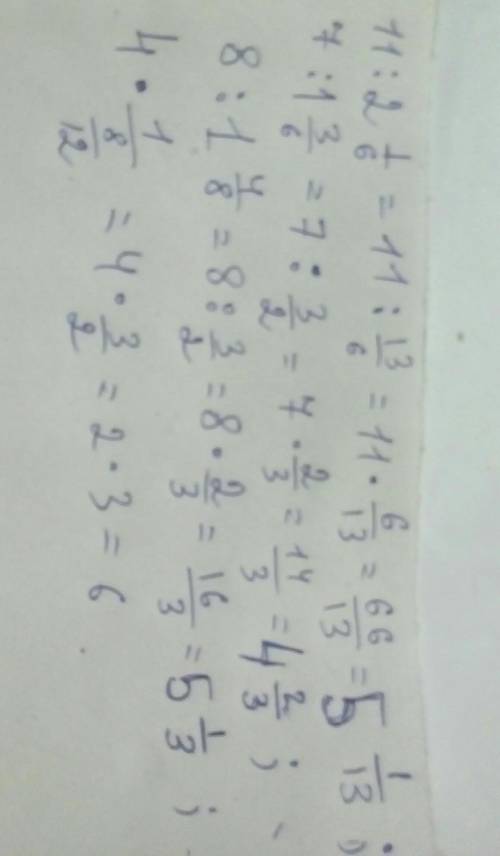 11 : 2 1/6 = 11 : 13/6 = 11 · 6/13 = 66/13 = 5 1/13 ;
7 : 1 3/6 = 7 : 3/2 = 7 · 2/3 = 14/3 = 4 2/3 ;
8 : 1 4/8 = 8 : 3/2 = 8 · 2/3 = 16/3 = 5 1/3 ;
4 · 1/(8/12) = 4 · 3/2 = 2 · 3 = 6